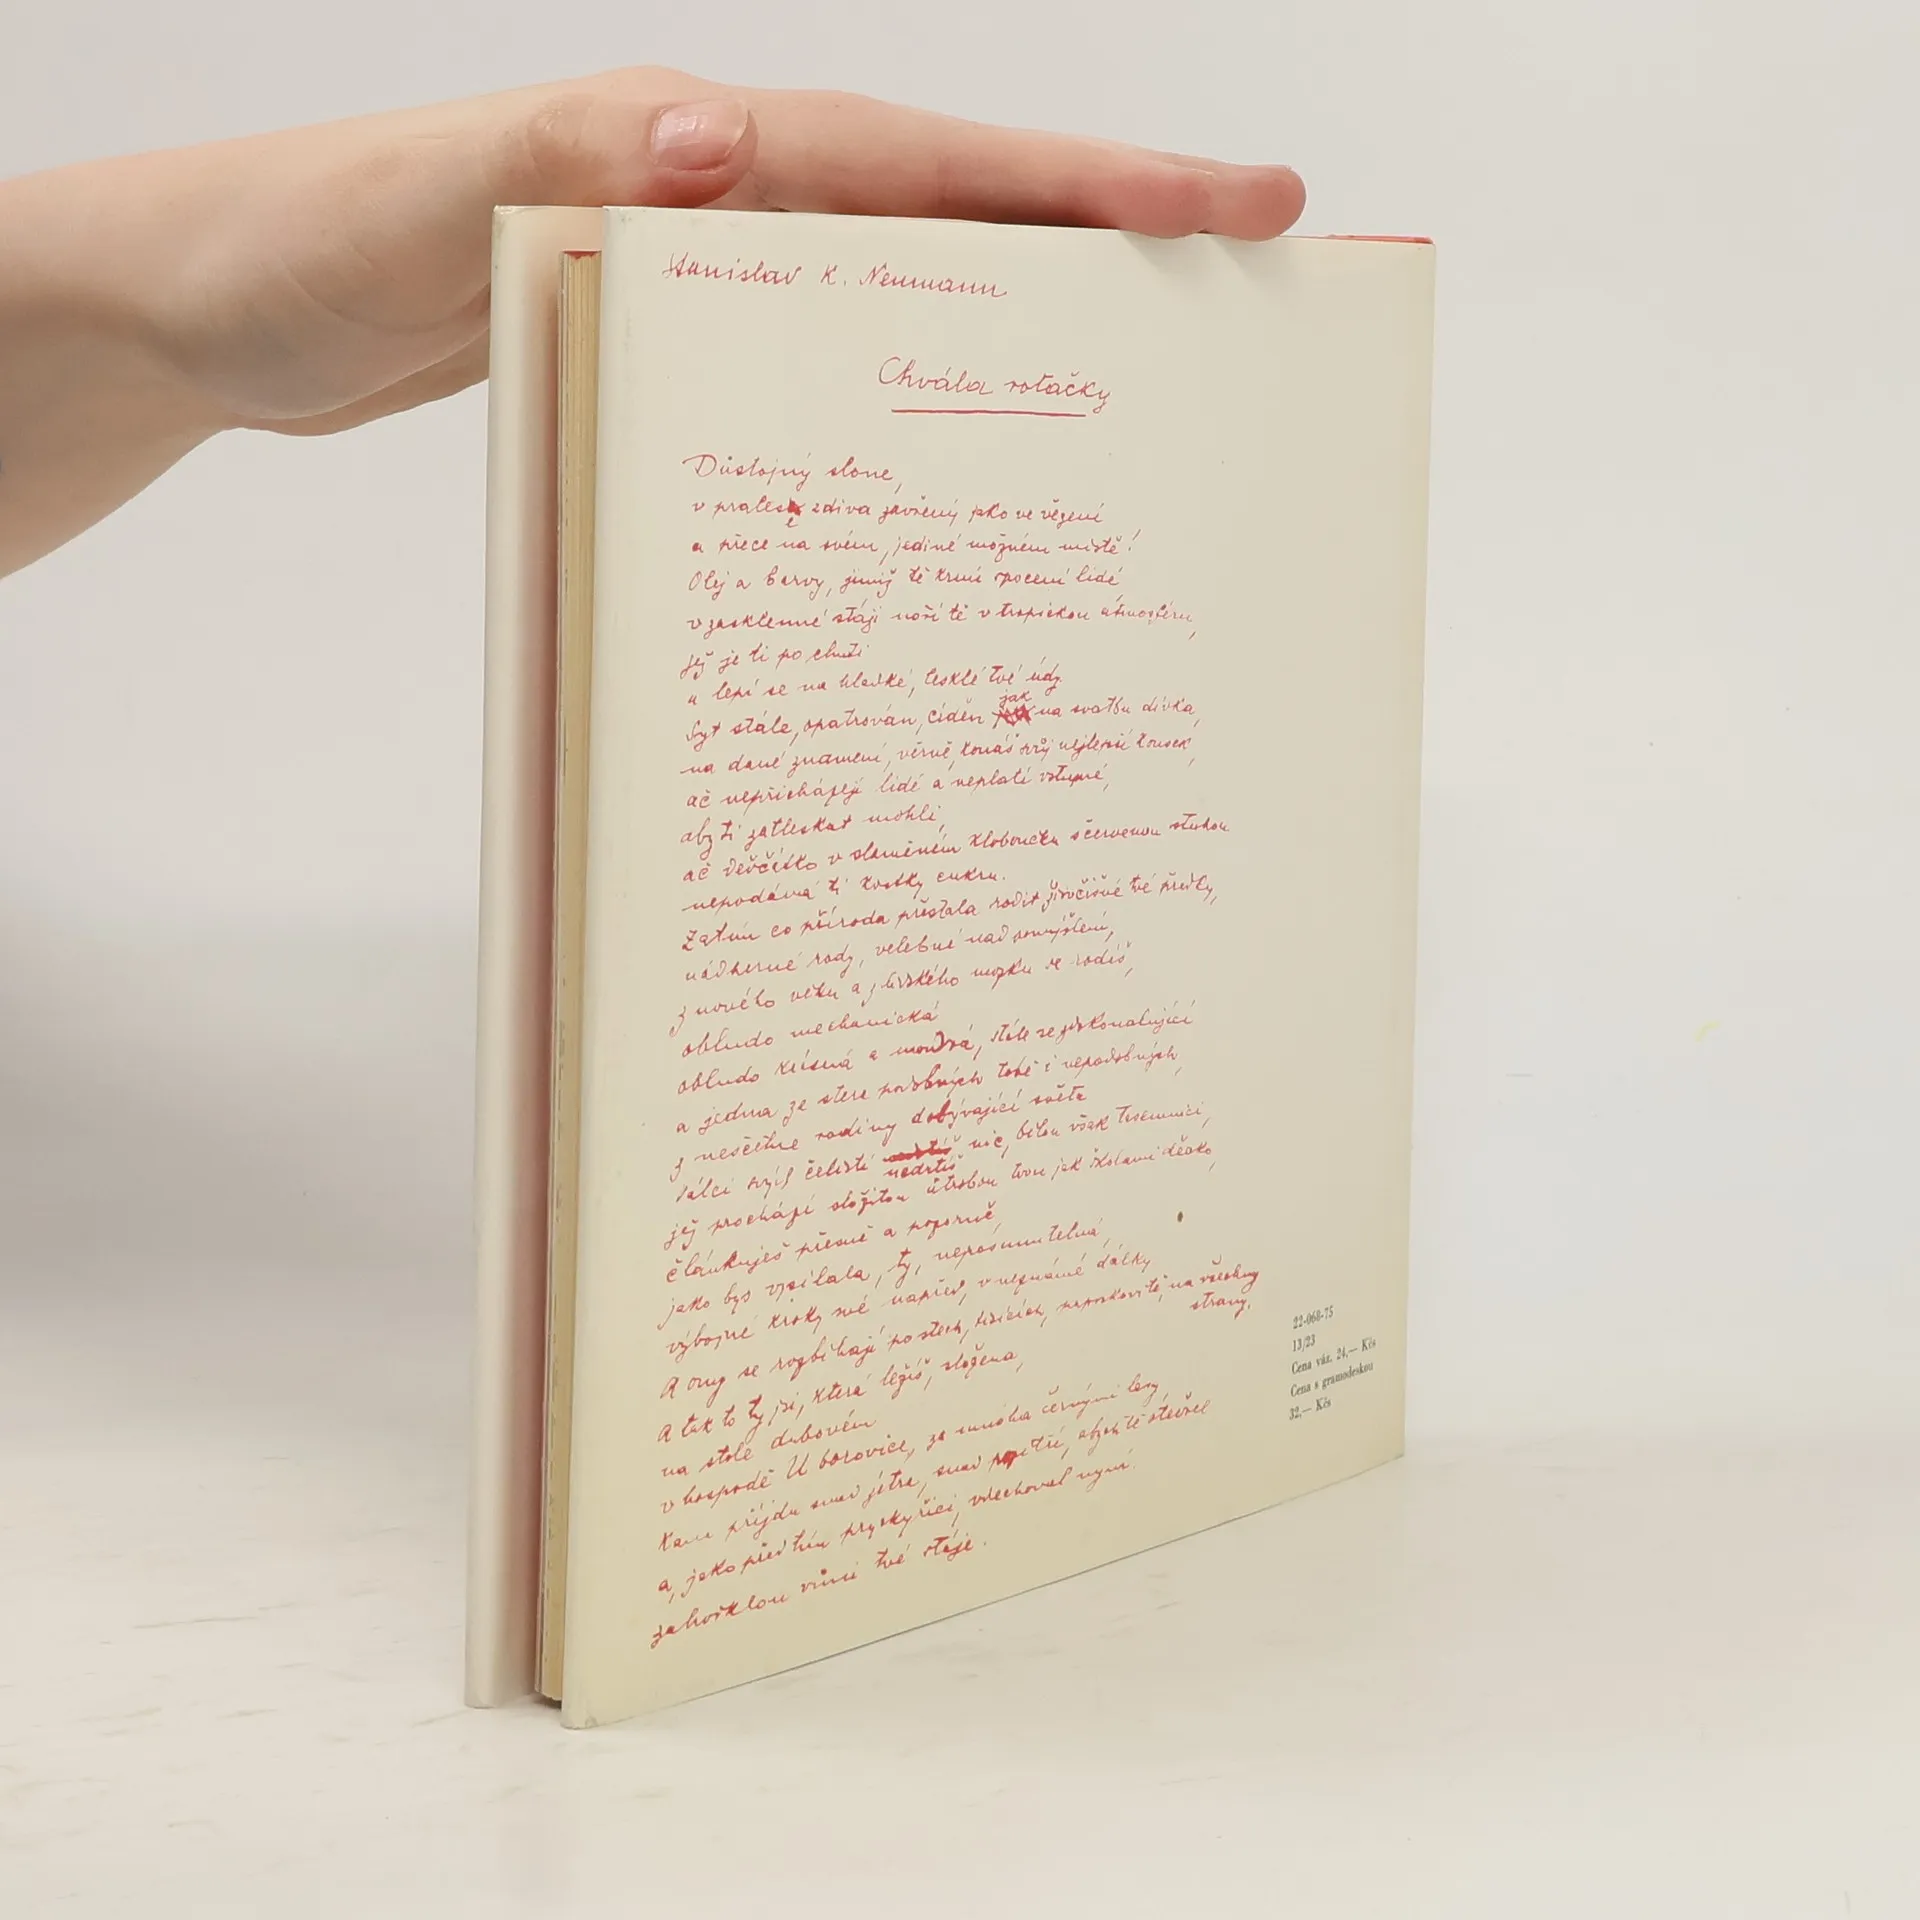 Stanislav K. Neumann
Chvála rotačky
Důstojný slone,
v pralese zdiva zavřený jako ve vězení
a přece na svém, jediné možném místě!
Olej a barvy, jimiž tě krmí zpocení lidé,
v zasklenné stáji noří tě v tropickou atmosféru,
jež je ti po chuti
a lepí se na hladké, lesklé tvé údy.
Syt stále, opatrován, cíděn jak na svatbu dívka,
na dané znamení, věrně, konáš svůj nejlepší kousek,
ač nepřicházejí lidé a neplatí vstupné,
aby ti zatleskat mohli,
ač děvčátko v slaměném kloboučku s červenou stuhou
nepodává ti kostky cukru.
Zatím co příroda přestala rodit živočišné tvé předky,
nádherné rody, velebné nad pomyšlení,
z nového věku a z lidského mozku se rodíš,
obludo mechanická
obludo krásná a moudrá, stále se zdokonalující
a jedna ze stera podobných tobě i nepodobných,
z nesčetné rodiny dobývající světa
Válci svých čelistí nedrtíš nic, bělou však tkseminici,
jež prochází složitou útrobou tvou jak školami děcko,
článkuješ přesně a pozorně,
jako bys vysílala, ty, neposunutelná,
výbojné kroky své napřed, v neznámé dálky
A ony se rozbíhají po stech, tisících, neposkvrnitě, na všechny
strany.
A tak to ty jsi, která ležíš, složena,
na stole dubovém
v hospodě U borovice, za mnoha černými lesy,
Kam přijdu snad zítra, snad pozítří, abych tě otevřel
a, jako předtím pryskyřici, vdechoval nyní
zahořklou vůni tvé stáje.
22-068-75
13/23
Cena váz. 24,— Kčs
Cena s gramodeskou
32,— Kčs